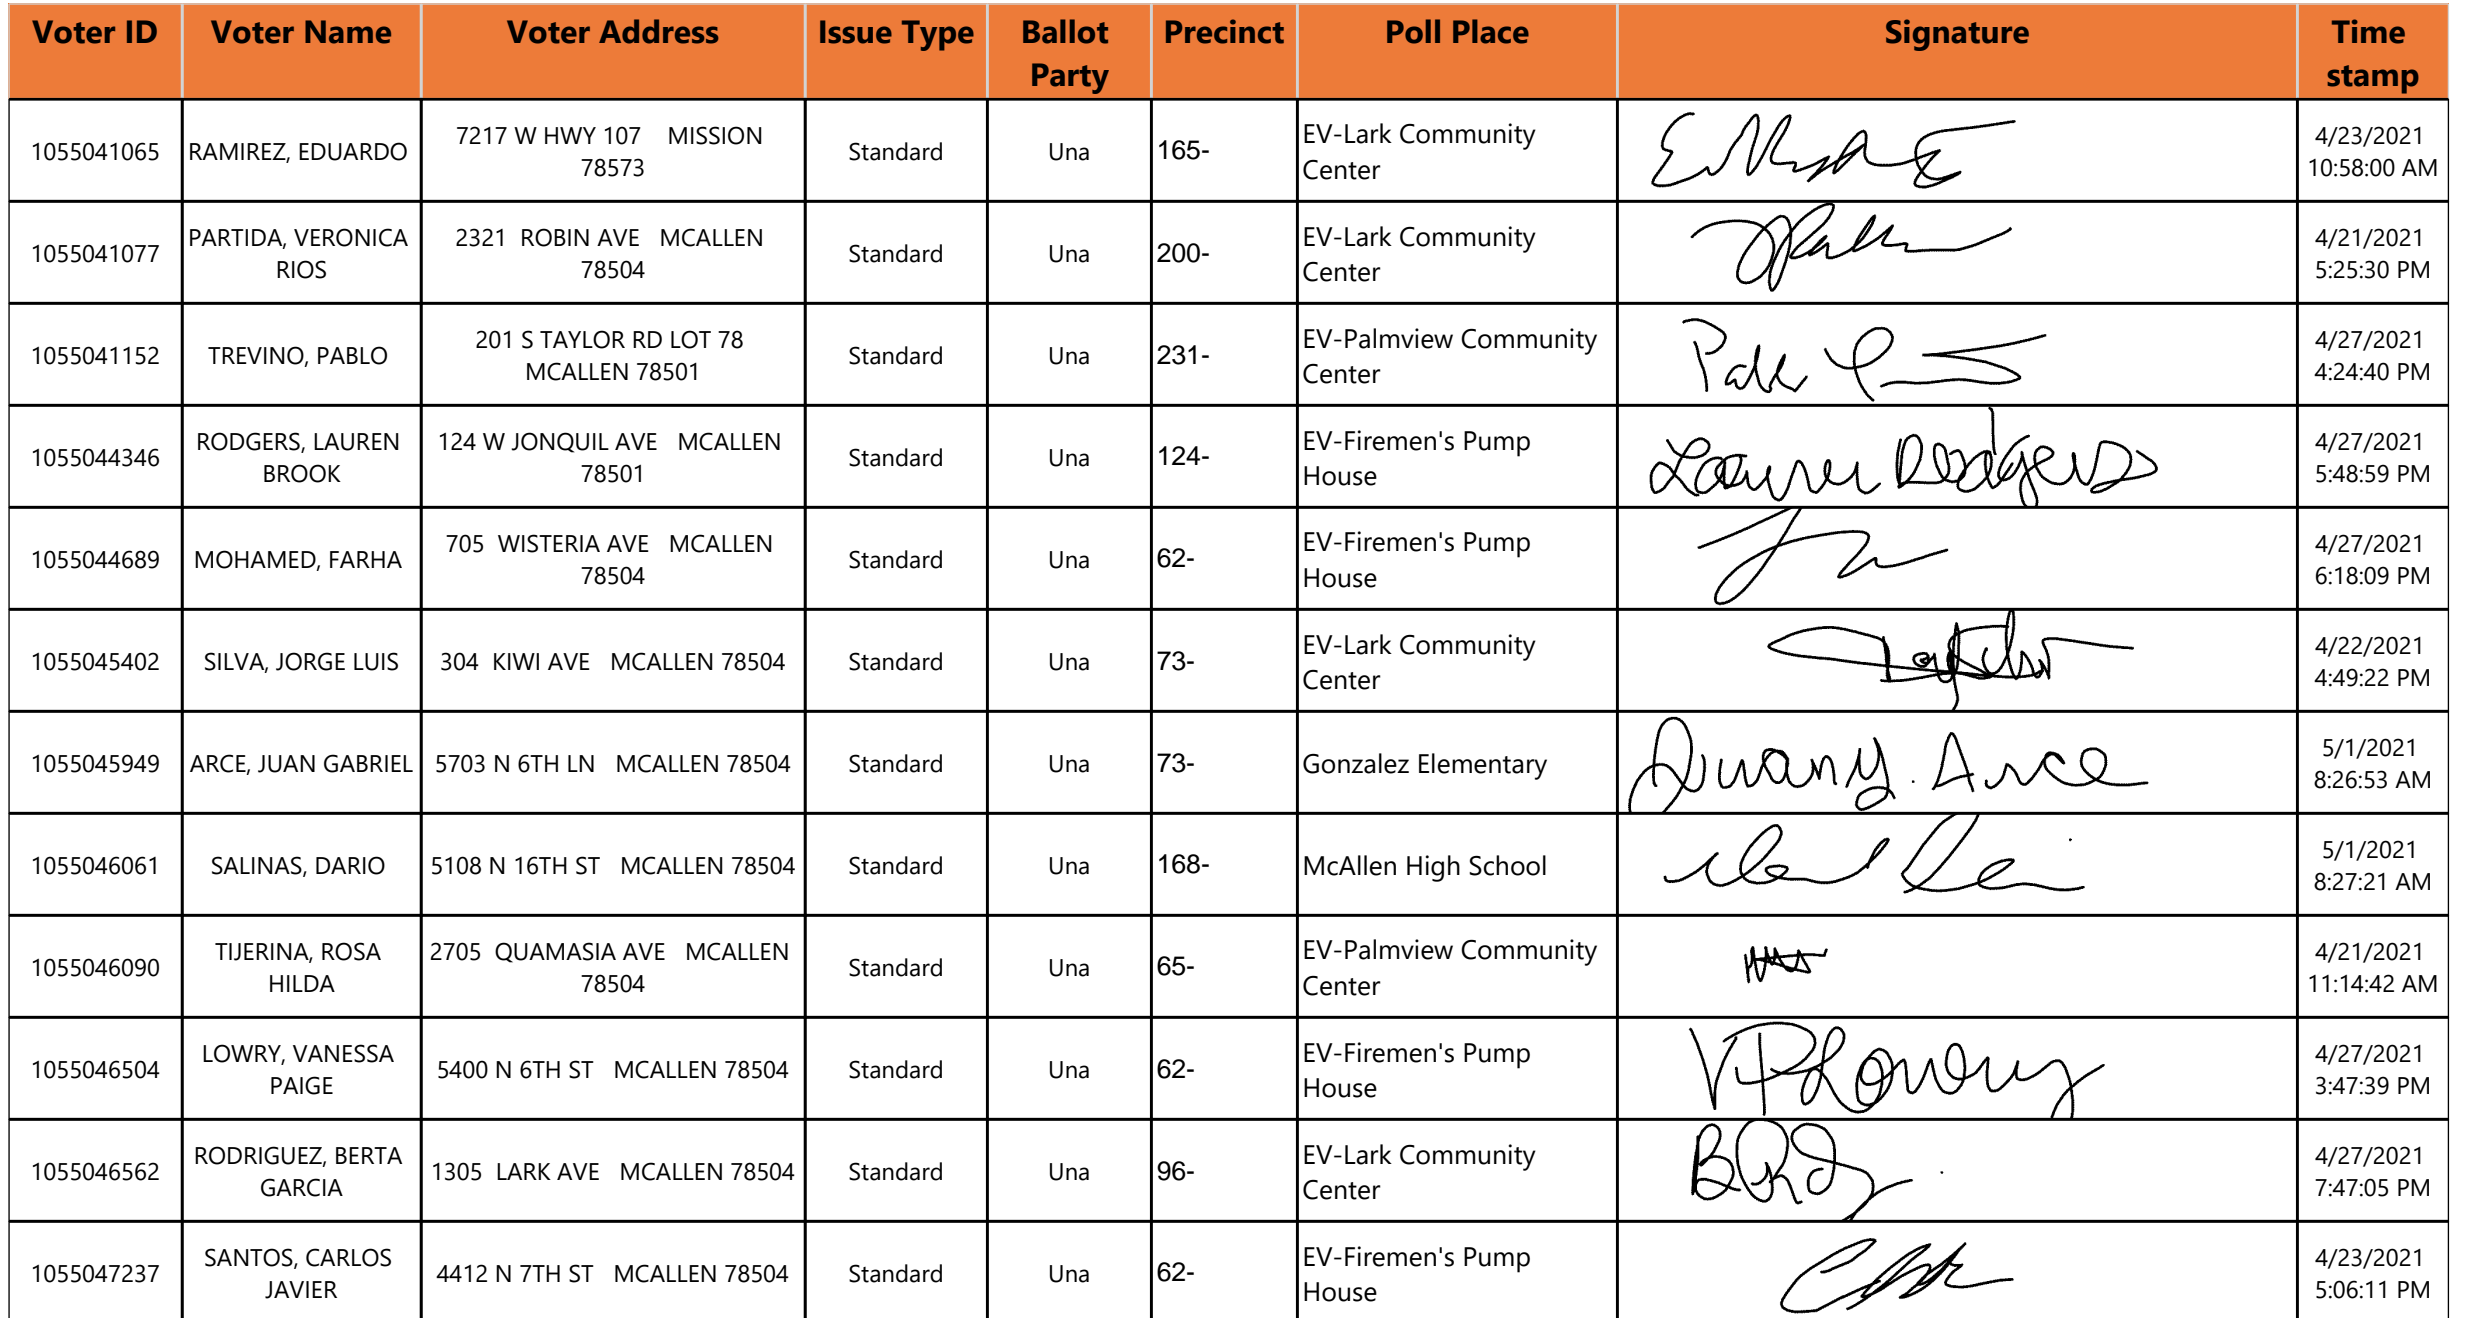 Voter ID Voter Name Voter Address Issue Type Ballot Party Precinct Poll Place Signature Time stamp
1055041065 RAMIREZ, EDUARDO 7217 W HWY 107 MISSION 78573 Standard Una 165- EV-Lark Community Center 4/23/2021 10:58:00 AM
1055041077 PARTIDA, VERONICA RIOS 2321 ROBIN AVE MCALLEN 78504 Standard Una 200- EV-Lark Community Center 4/21/2021 5:25:30 PM
1055041152 TREVINO, PABLO 201 S TAYLOR RD LOT 78 MCALLEN 78501 Standard Una 231- EV-Palmview Community Center 4/27/2021 4:24:40 PM
1055044346 RODGERS, LAUREN BROOK 124 W JONQUIL AVE MCALLEN 78501 Standard Una 124- EV-Firemen's Pump House Lauren Rodgers 4/27/2021 5:48:59 PM
1055044689 MOHAMED, FARHA 705 WISTERIA AVE MCALLEN 78504 Standard Una 62- EV-Firemen's Pump House 4/27/2021 6:18:09 PM
1055045402 SILVA, JORGE LUIS 304 KIWI AVE MCALLEN 78504 Standard Una 73- EV-Lark Community Center 4/22/2021 4:49:22 PM
1055045949 ARCE, JUAN GABRIEL 5703 N 6TH LN MCALLEN 78504 Standard Una 73- Gonzalez Elementary Juan G. Arce 5/1/2021 8:26:53 AM
1055046061 SALINAS, DARIO 5108 N 16TH ST MCALLEN 78504 Standard Una 168- McAllen High School 5/1/2021 8:27:21 AM
1055046090 TIJERINA, ROSA HILDA 2705 QUAMASIA AVE MCALLEN 78504 Standard Una 65- EV-Palmview Community Center 4/21/2021 11:14:42 AM
1055046504 LOWRY, VANESSA PAIGE 5400 N 6TH ST MCALLEN 78504 Standard Una 62- EV-Firemen's Pump House VPLowry 4/27/2021 3:47:39 PM
1055046562 RODRIGUEZ, BERTA GARCIA 1305 LARK AVE MCALLEN 78504 Standard Una 96- EV-Lark Community Center 4/27/2021 7:47:05 PM
1055047237 SANTOS, CARLOS JAVIER 4412 N 7TH ST MCALLEN 78504 Standard Una 62- EV-Firemen's Pump House 4/23/2021 5:06:11 PM